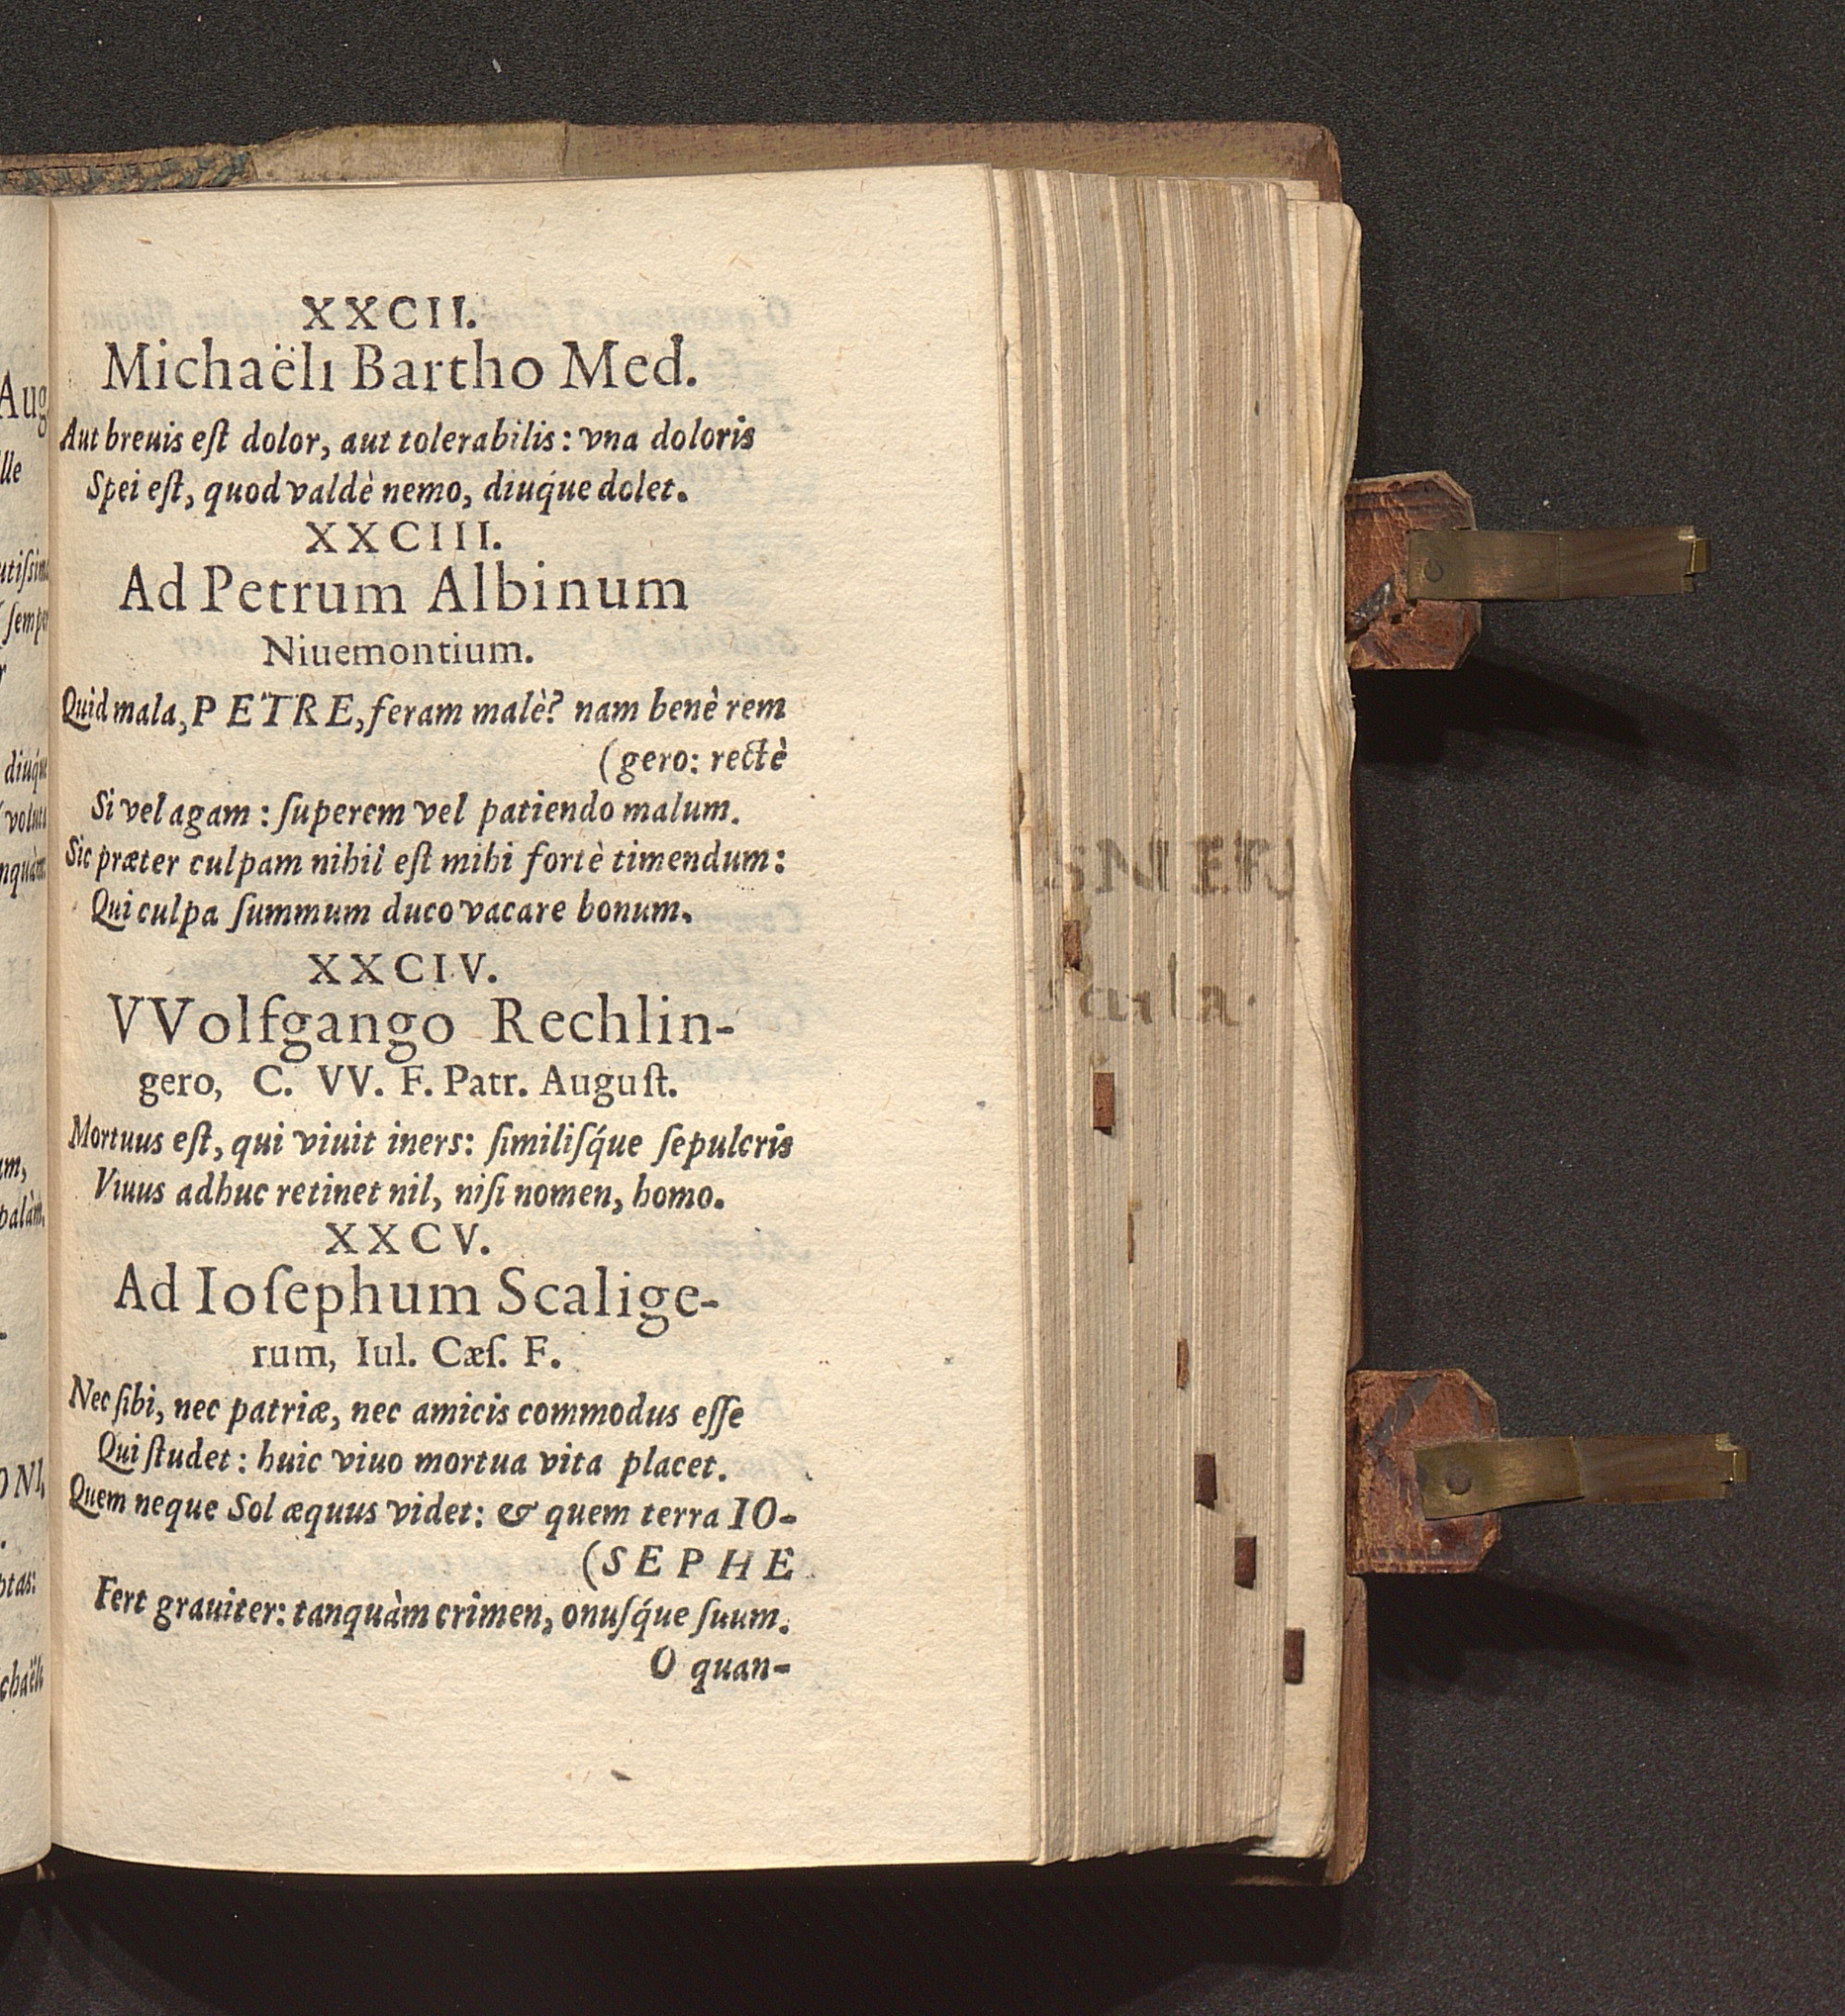 XXCII.
Michaëli Bartho Med.
Aut breuis eſt dolor, aut tolerabilis: vna doloris
Spei eſt, quod valdè nemo, diuq́ue dolet.
XXCIII.
Ad Petrum Albinum
Niuemontium.
Quid mala, PETRE, feram malè? nam benè rem
(gero: rectè
Si vel agam: ſuperem vel patiendo malum.
Sic præter culpam nihil eſt mihi fortè timendum:
Qui culpa ſummum duco vacare bonum.
XXCIV.
VVolfgango Rechlin-
gero, C. VV. F. Patr. Auguſt.
Mortuus eſt, qui viuit iners: ſimiliſq́ue ſepulcris
Viuus adhuc retinet nil, niſi nomen, homo.
XXCV.
Ad Ioſephum Scalige-
rum, Iul. Cæſ. F.
Nec ſibi, nec patriæ, nec amicis commodus eſſe
Qui ſtudet: huic viuo mortua vita placet.
Quem neque Sol æquus videt: & quem terra IO-
(SEPHE
Fert grauiter: tanquàm crimen, onuſq́ue ſuum.
O quan-